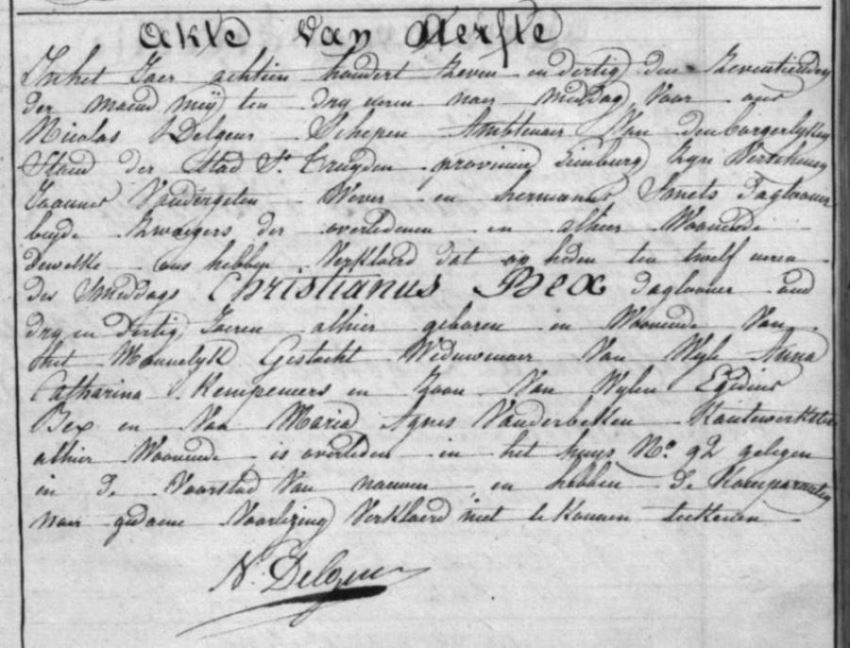 Akte van Sterfte
In het Jaer achtien hondert Zeven en dertig den Zeventienden
der maend meÿ ten drÿ uren naer middag voor ons
Nicolas Delgeur Schepen Ambtenaer Van den borgerlyken
Stand der Stad St Truyden provincie Limburg Zyn Verschenen
Joannes Vandergeten Wever en hermanus Sanets dagloonner
beyde Zwaegers der overledenen en alhier Woonende
dewelke ons hebben Verklaerd dat op heden ten twelf uren
des Smiddags Christianus Bex dagloonner oud
dry en dertig Jaeren alhier geboren en Woonende Van
het Mannelyk Geslacht Weduwenaer Van Wyle Anna
Catharina Kempeneers en Zoon Van Wylen Egidius
Bex en Van Maria Agnes Vanderbeken Kantewerkster
alhier Woonende is overleden in het huys No 92 gelegen
in de Voorstad Van nauwen en hebben de Komparanten
naer gedaene Voorlezing Verklaerd niet te Konnen teekenen
N. Delgeur